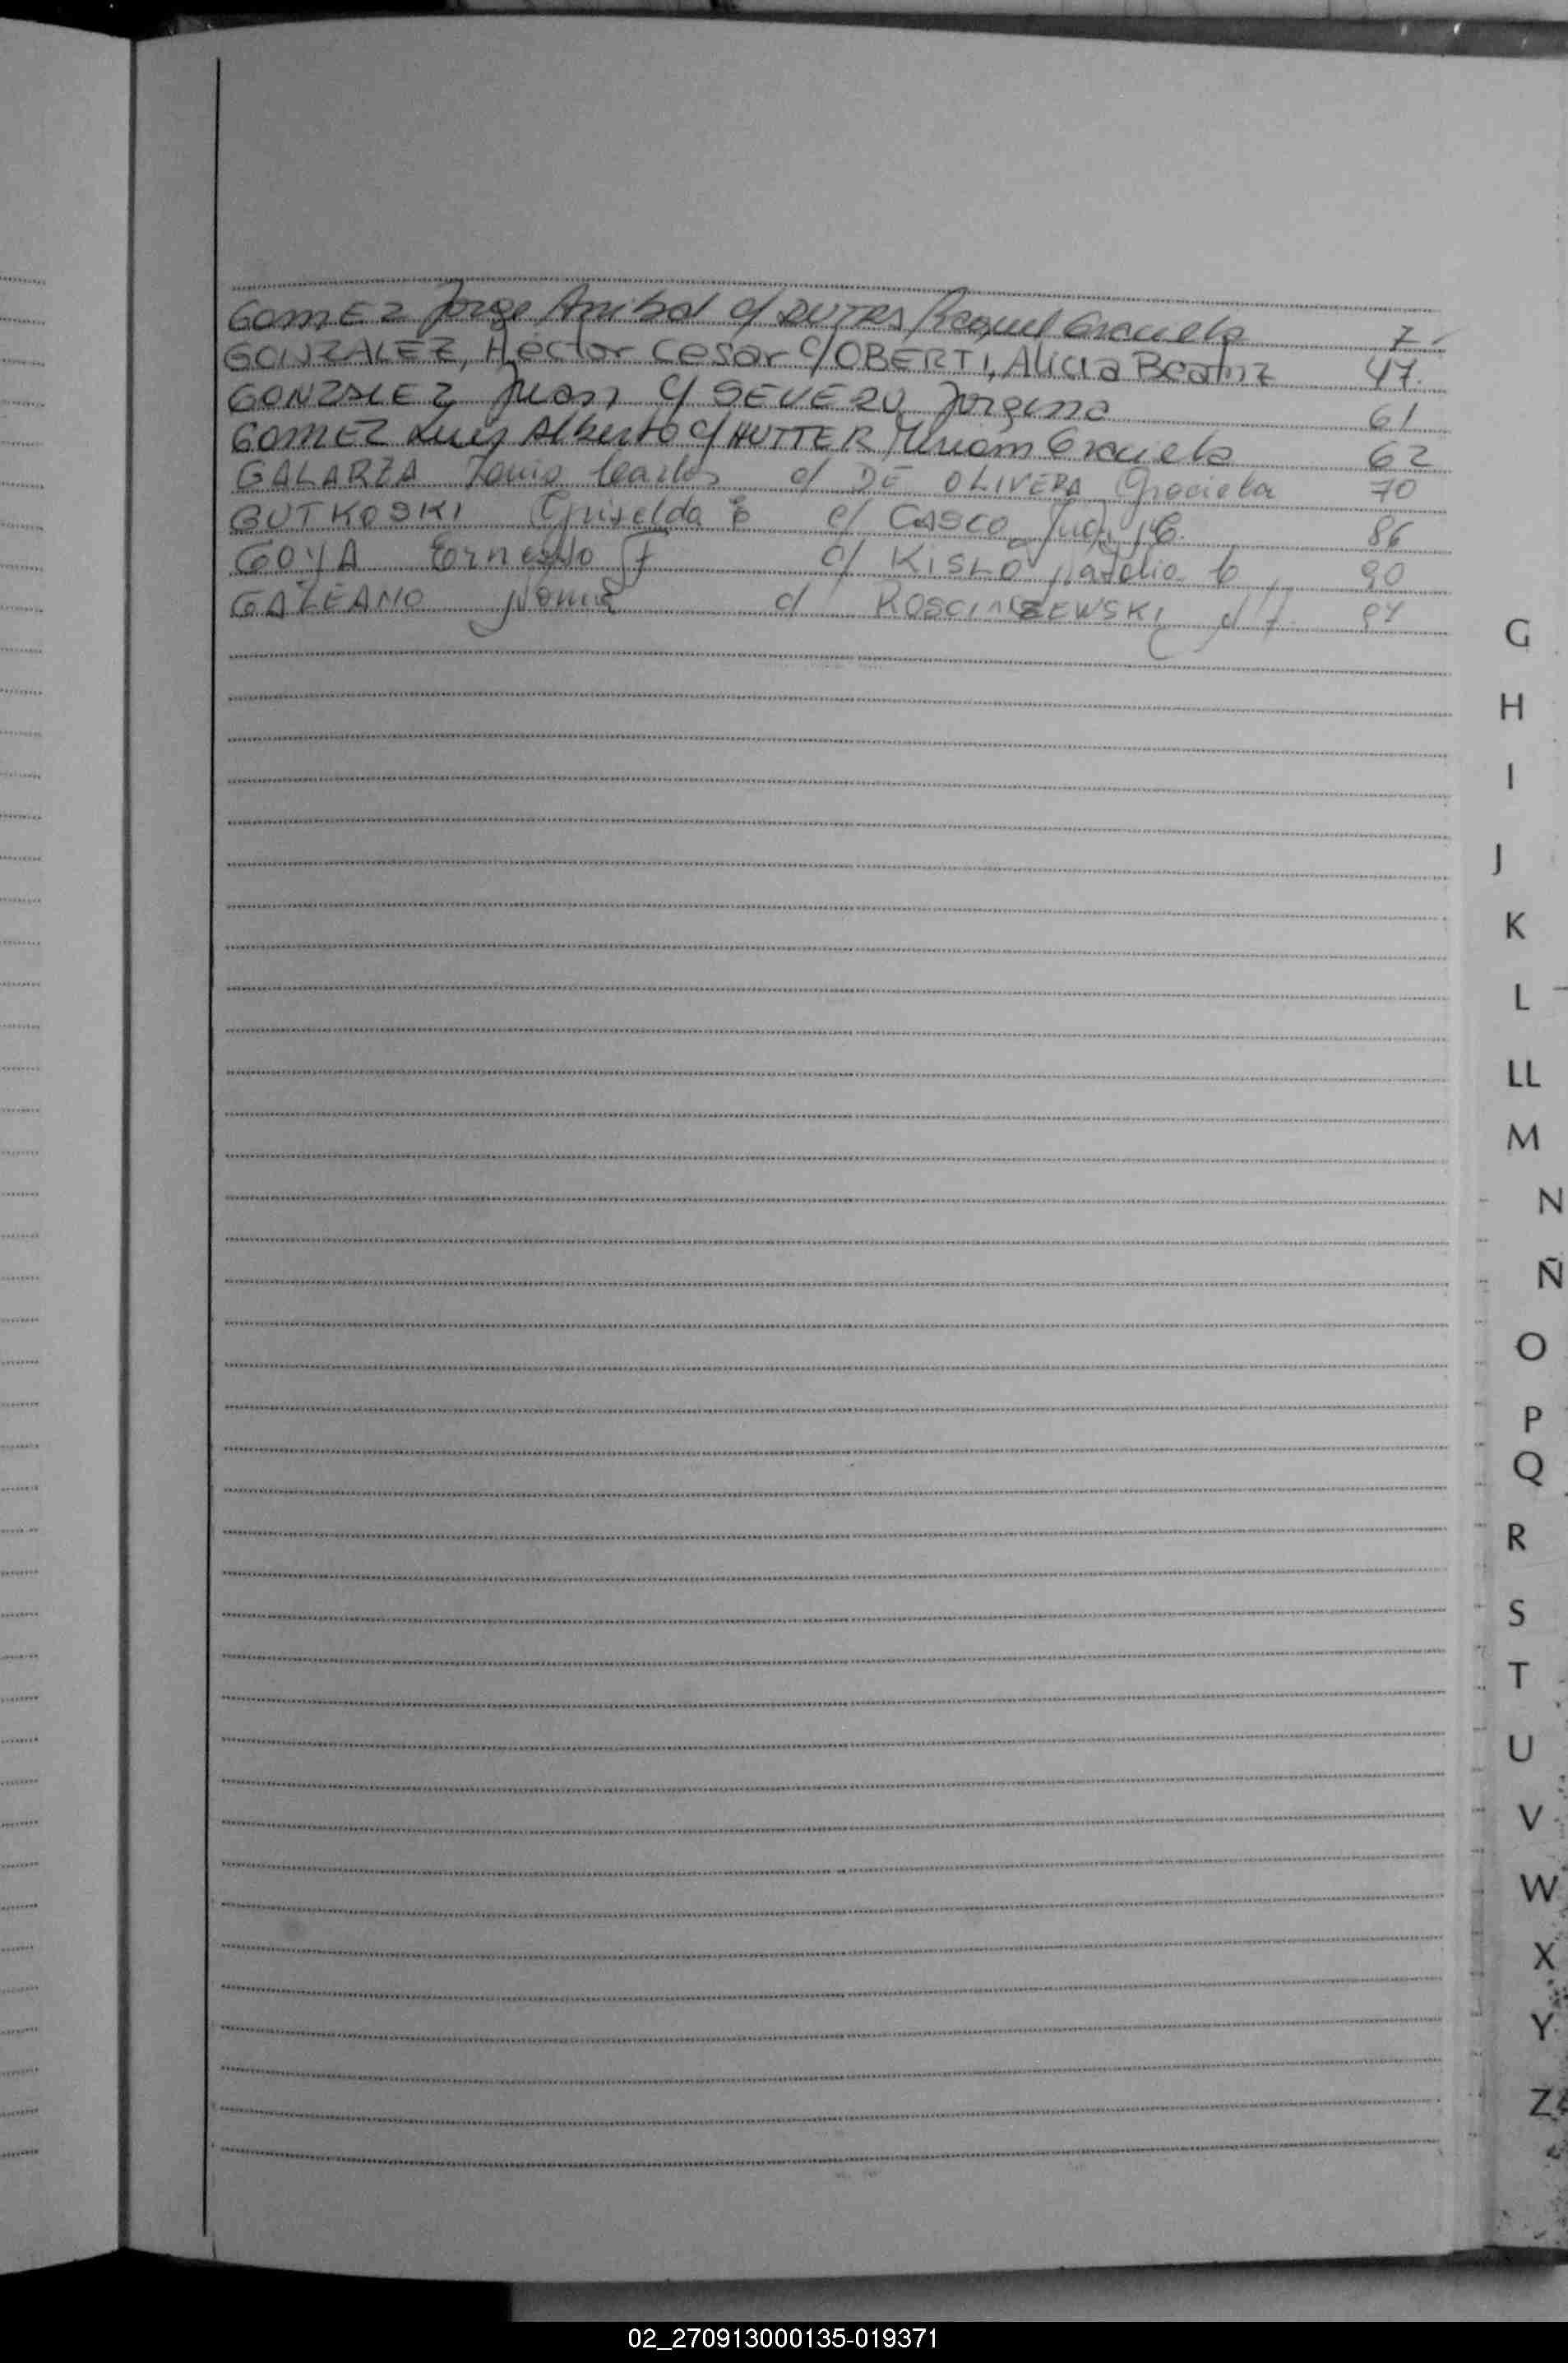 GOMEZ Jorge Anibal c/ DUTRA Raquel Graciela 7
GONZALEZ, Héctor Cesar c/ OBERTI, Alicia Beatriz 47.
GONZALEZ Juan c/ SEVERO Jorgena 61
GOMEZ Luis Alberto c/ HUTTER Miriam Graciela 62
GALARZA Louis Carlos c/ DE OLIVERA Graciela 70
GUTKOSKI Griselda E c/ CASCO Juan C. 86
GOYA Ernesto F c/ KISLO Natalia 90
GALEANO c/
G
H
I
J
K
L
LL
M
N
Ñ
O
P
Q
R
S
T
U
V
W
X
Y
Z
02_270913000135-019371